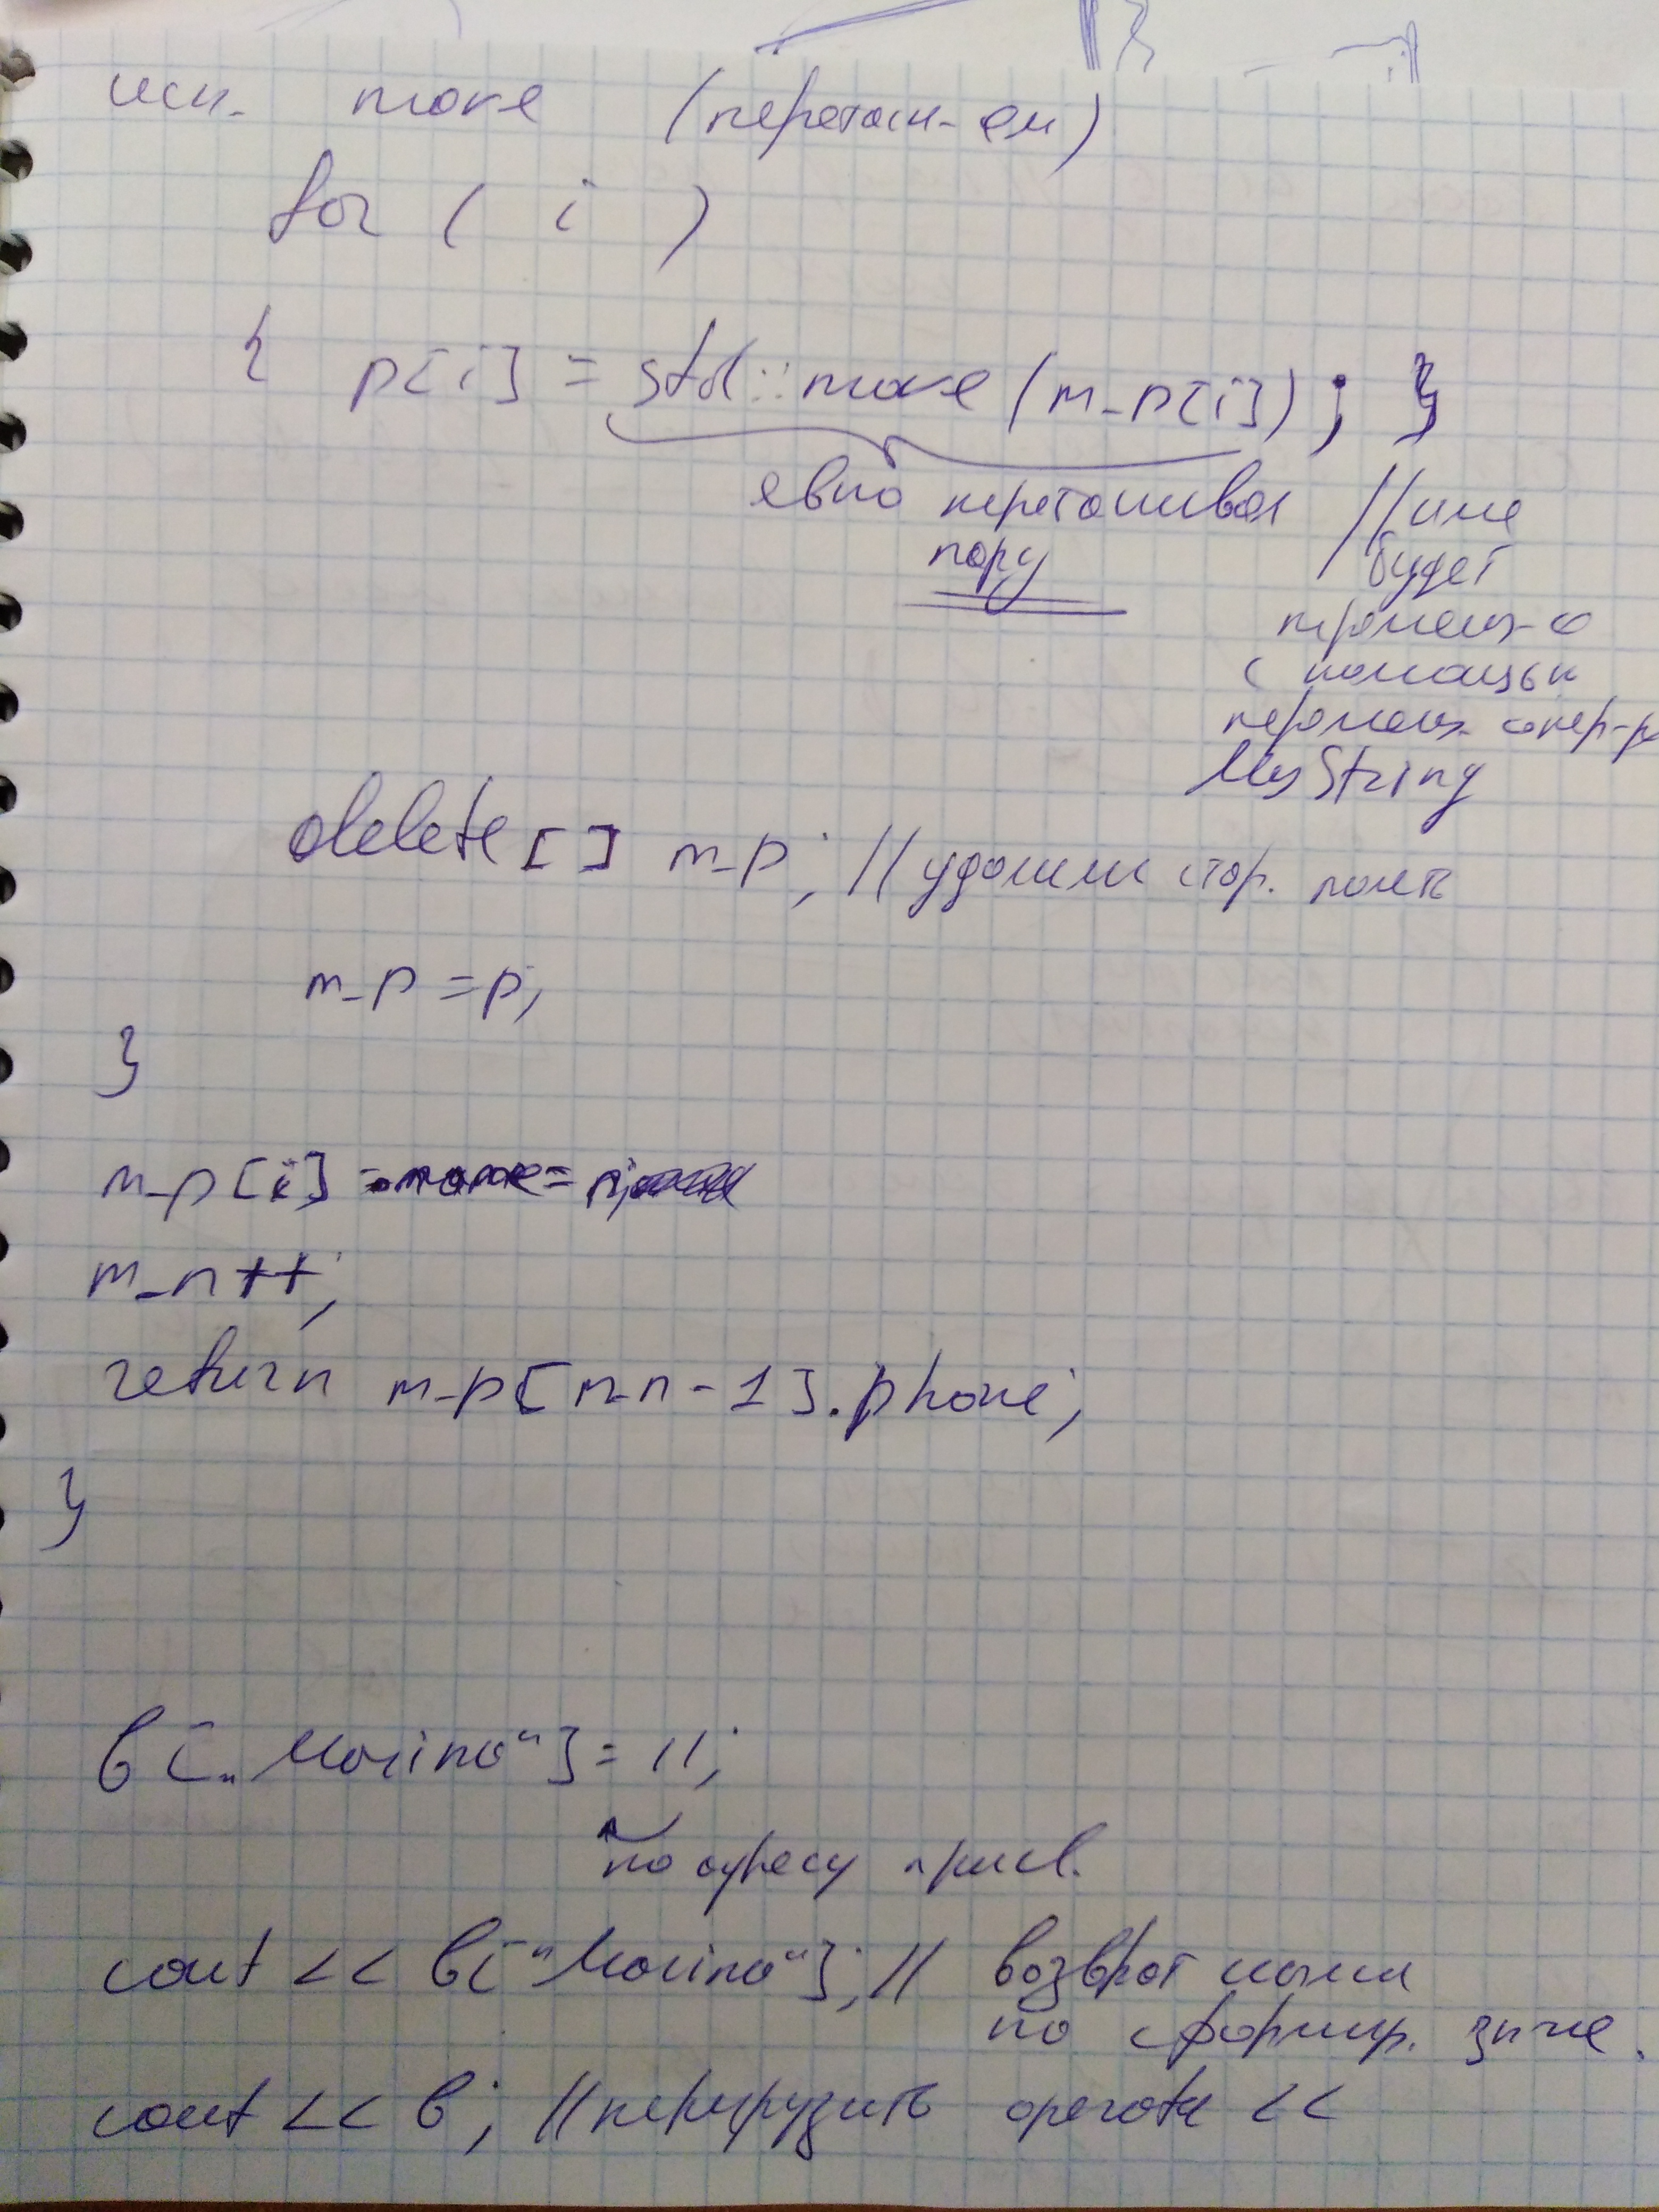 исп. move (перетаск-ем)
for ( i )
{ p[i] = std::move(m_p[i]); }
явно перетаскивая
пару
//имя
будет
перемещ-о
с помощью
перемещ. опер-ра
MyString
delete[] m_p; //удалили стар. память
m_p = p;
}
m_p[i] =
m_n++;
return m_p[m_n-1].phone;
}
b[„Marina“] = 11;
по адресу присв.
cout << b[“Marina“]; // возврат
по сформир.
cout << b; //перегрузить operator <<